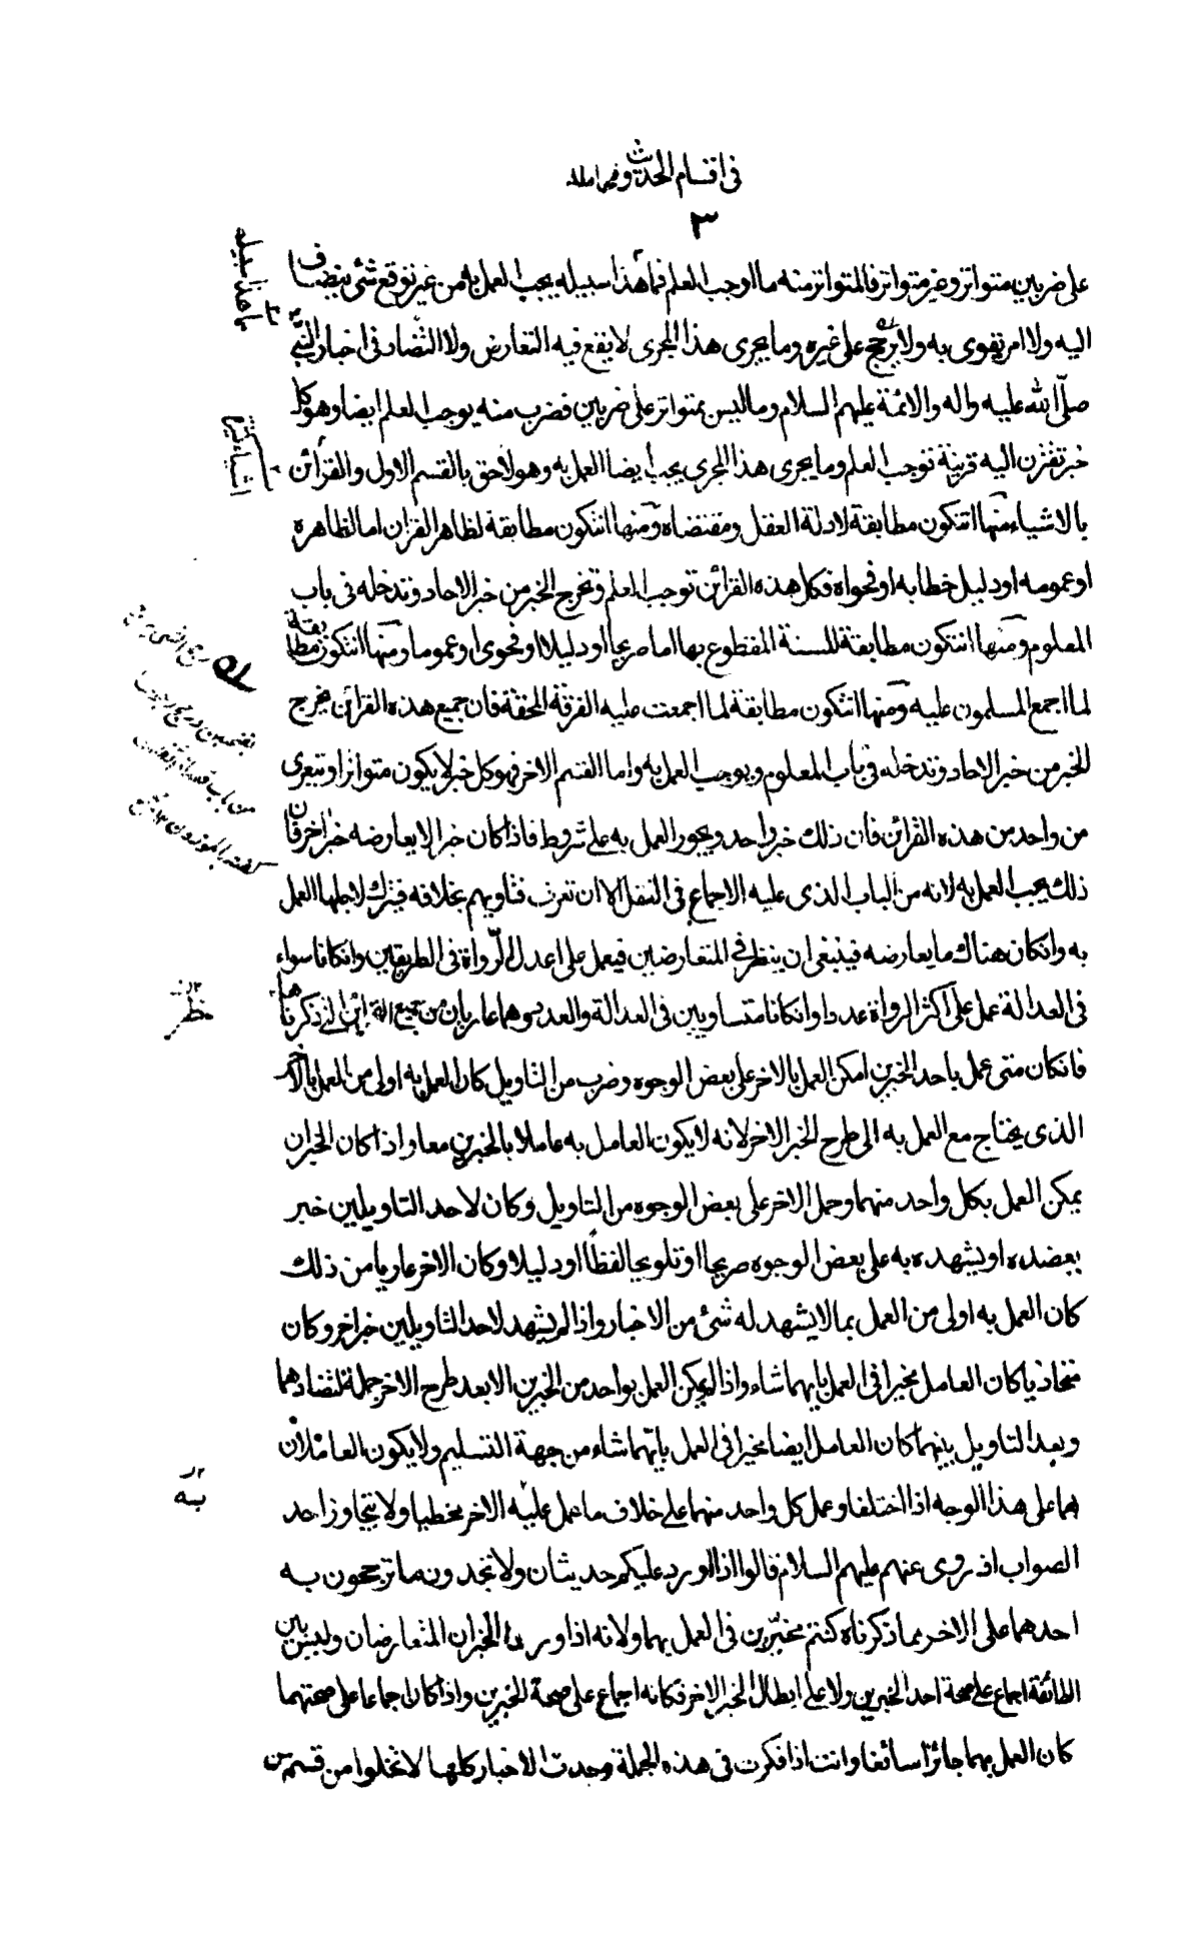 فى اقسام الحديث
٣
على ضربين متواتر وغير متواتر فالمتواتر منه ما اوجب العلم فما هذا سبيله يجب العمل به من غير توقع شئ ينضاف
اليه ولا امر يقوى به ولا يرجح على غيره وما يجرى هذا المجرى لا يقع فيه التعارض ولا التضاد فى اخبار النبى
صلى الله عليه واله والائمة عليهم السلام وما ليس بمتواتر على ضربين فضرب منه يوجب العلم ايضا وهو كل
خبر تقترن اليه قرينة توجب العلم وما يجرى هذا المجرى يجب ايضا العمل به وهو لاحق بالقسم الاول والقرائن
بالاشياء منها ان تكون مطابقة لادلة العقل ومقتضاه ومنها ان تكون مطابقة لظاهر القران اما لظاهره
او عمومه او دليل خطابه او فحواه فكل هذه القرائن توجب العلم وتخرج الخبر من خبر الاحاد وتدخله فى باب
المعلوم ومنها ان تكون مطابقة للسنة المقطوع بها اما صريحا او دليلا او فحوى او عموما ومنها ان تكون مطابقة
لما اجمع المسلمون عليه ومنها ان تكون مطابقة لما اجمعت عليه الفرقة المحقة فان جميع هذه القرائن تخرج
الخبر من خبر الاحاد وتدخله فى باب المعلوم ويوجب العمل به واما القسم الاخر فهو كل خبر لا يكون متواترا ويتعرى
من واحد من هذه القرائن فان ذلك خبر واحد ويجوز العمل به على شروط فاذا كان خبر لا يعارضه خبر اخر فان
ذلك يجب العمل به لانه من الباب الذى عليه الاجماع فى النقل الا ان تعرف فتاويهم بخلافه فيترك لاجلها العمل
به وان كان هناك ما يعارضه فينبغى ان ينظر فى المتعارضين فيعمل على اعدل الرواة فى الطريقين وان كانا سواء
فى العدالة عمل على اكثر الرواة عددا وان كانا متساويين فى العدالة والعدد وهما عاريان من جميع القرائن التى ذكرناها
فان كان متى عمل باحد الخبرين امكن العمل بالاخر على بعض الوجوه وضرب من التاويل كان العمل به اولى من العمل بالاخر
الذى يحتاج مع العمل به الى طرح الخبر الاخر لانه لا يكون العامل به عاملا بالخبرين معا واذا كان الخبران
يمكن العمل بكل واحد منهما وحمل الاخر على بعض الوجوه من التاويل وكان لاحد التاويلين خبر
يعضده او يشهد به على بعض الوجوه صريحا او تلويحا لفظا او دليلا وكان الاخر عاريا من ذلك
كان العمل به اولى من العمل بما لا يشهد له شئ من الاخبار واذا لم يشهد لاحد التاويلين خبر اخر وكان
متحاذيا كان العامل مخيرا فى العمل بايهما شاء واذا لم يمكن العمل بواحد من الخبرين الا بعد طرح الاخر جملة لتضادهما
وبعد التاويل بينهما كان العامل ايضا مخيرا فى العمل بايهما شاء من جهة التسليم ولا يكون العاملان
بهما على هذا الوجه اذا اختلفا وعمل كل واحد منهما على خلاف ما عمل عليه الاخر مخطيا ولا متجاوزا حد
الصواب اذ روى عنهم عليهم السلام قالوا اذا ورد عليكم حديثان ولا تجدون ما ترجحون به
احدهما على الاخر بما ذكرناه كنتم مخيرين فى العمل بهما ولانه اذا ورد الخبران المتعارضان وليس بين
الطائفة اجماع على صحة احد الخبرين ولا على ابطال الخبر الاخر فكانه اجماع على صحة الخبرين واذا كان اجماعا على صحتهما
كان العمل بهما جائزا سائغا وانت اذا فكرت فى هذه الجملة وجدت الاخبار كلها لا تخلوا من قسم من